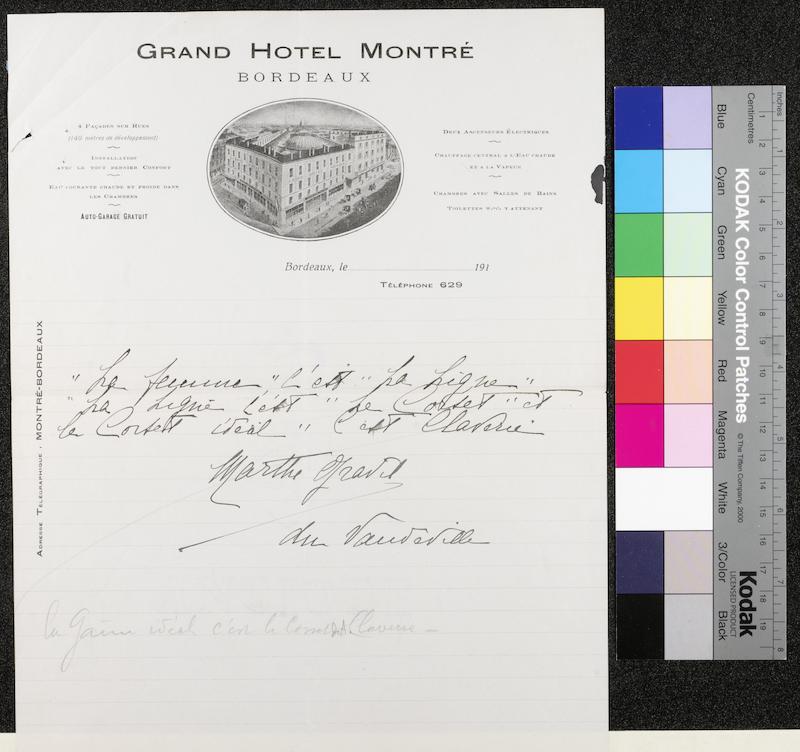 GRAND HOTEL MONTRÉ
BORDEAUX
4 FAÇADES SUR RUES
(140 mètres de développement)
INSTALLATION
AVEC LE TOUT DERNIER CONFORT
EAU COURANTE CHAUDE ET FROIDE DANS
LES CHAMBRES
AUTO-GARAGE GRATUIT
DEUX ASCENSEURS ÉLECTRIQUES
CHAUFFAGE CENTRAL A L'EAU CHAUDE
ET A LA VAPEUR
CHAMBRES AVEC SALLES DE BAINS
TOILETTES W.-C. Y ATTENANT
Bordeaux, le 191
TÉLÉPHONE 629
ADRESSE TÉLÉGRAPHIQUE : MONTRÉ-BORDEAUX
"La femme" c'est "La Ligne"
"La Ligne c'est "Le Corset" et
le Corset idéal" c'est Claverie
Marthe
du Vaudeville
la Gaine idéale c'est le Corset A. Claverie
Blue
Cyan
Green
Yellow
Red
Magenta
White
3/Color
Black
KODAK Color Control Patches
© The Tiffen Company, 2000
Kodak
LICENSED PRODUCT
Centimetres
Inches
1
2
3
4
5
6
7
8
9
10
11
12
13
14
15
16
17
18
19
1
2
3
4
5
6
7
8